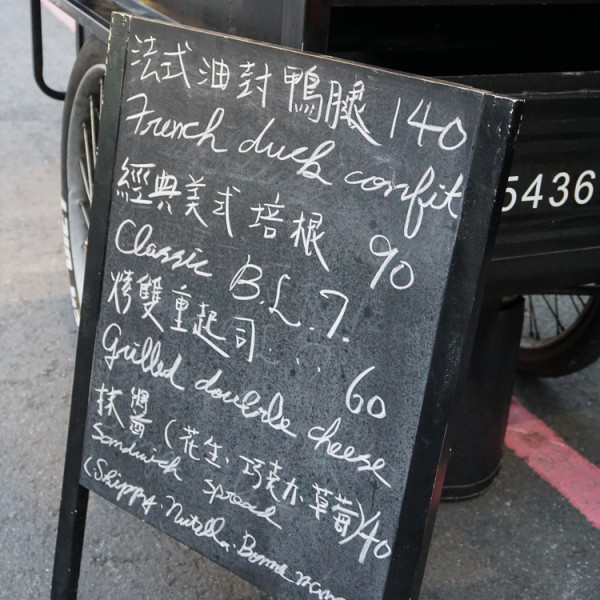 法式油封鴨腿 140
French duck confit
經典美式培根 90
Classic B.L.T.
烤雙重起司... 60
Grilled double cheese
抹醬(花生.巧克力.草莓)40
Sandwich spread
(Skippy. Nutella. Bonne mama
5436